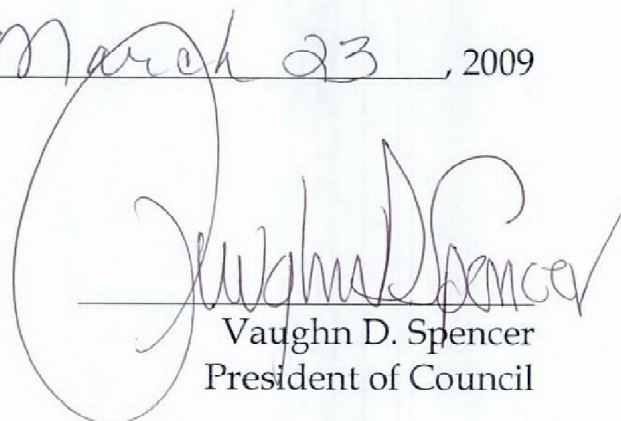 March 23, 2009
Vaughn D Spencer
Vaughn D. Spencer
President of Council